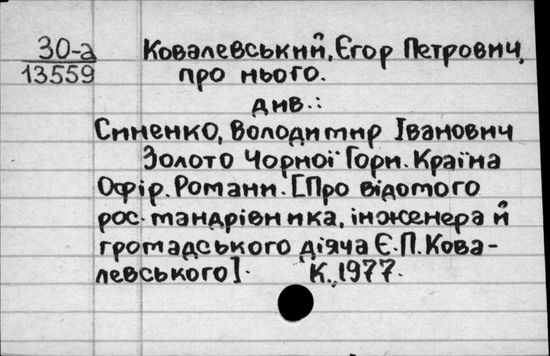 30-а
13559
Ковалевський, Єгор Петрович,
про нього.
див.:
Синенко, Володимир Іванович
Золото Чорної Гори. Країна
Офір. Романи. [Про відомого
рос. мандрівника, інженера й
громадського діяча Є.П. Кова-
левського].	К., 1977.